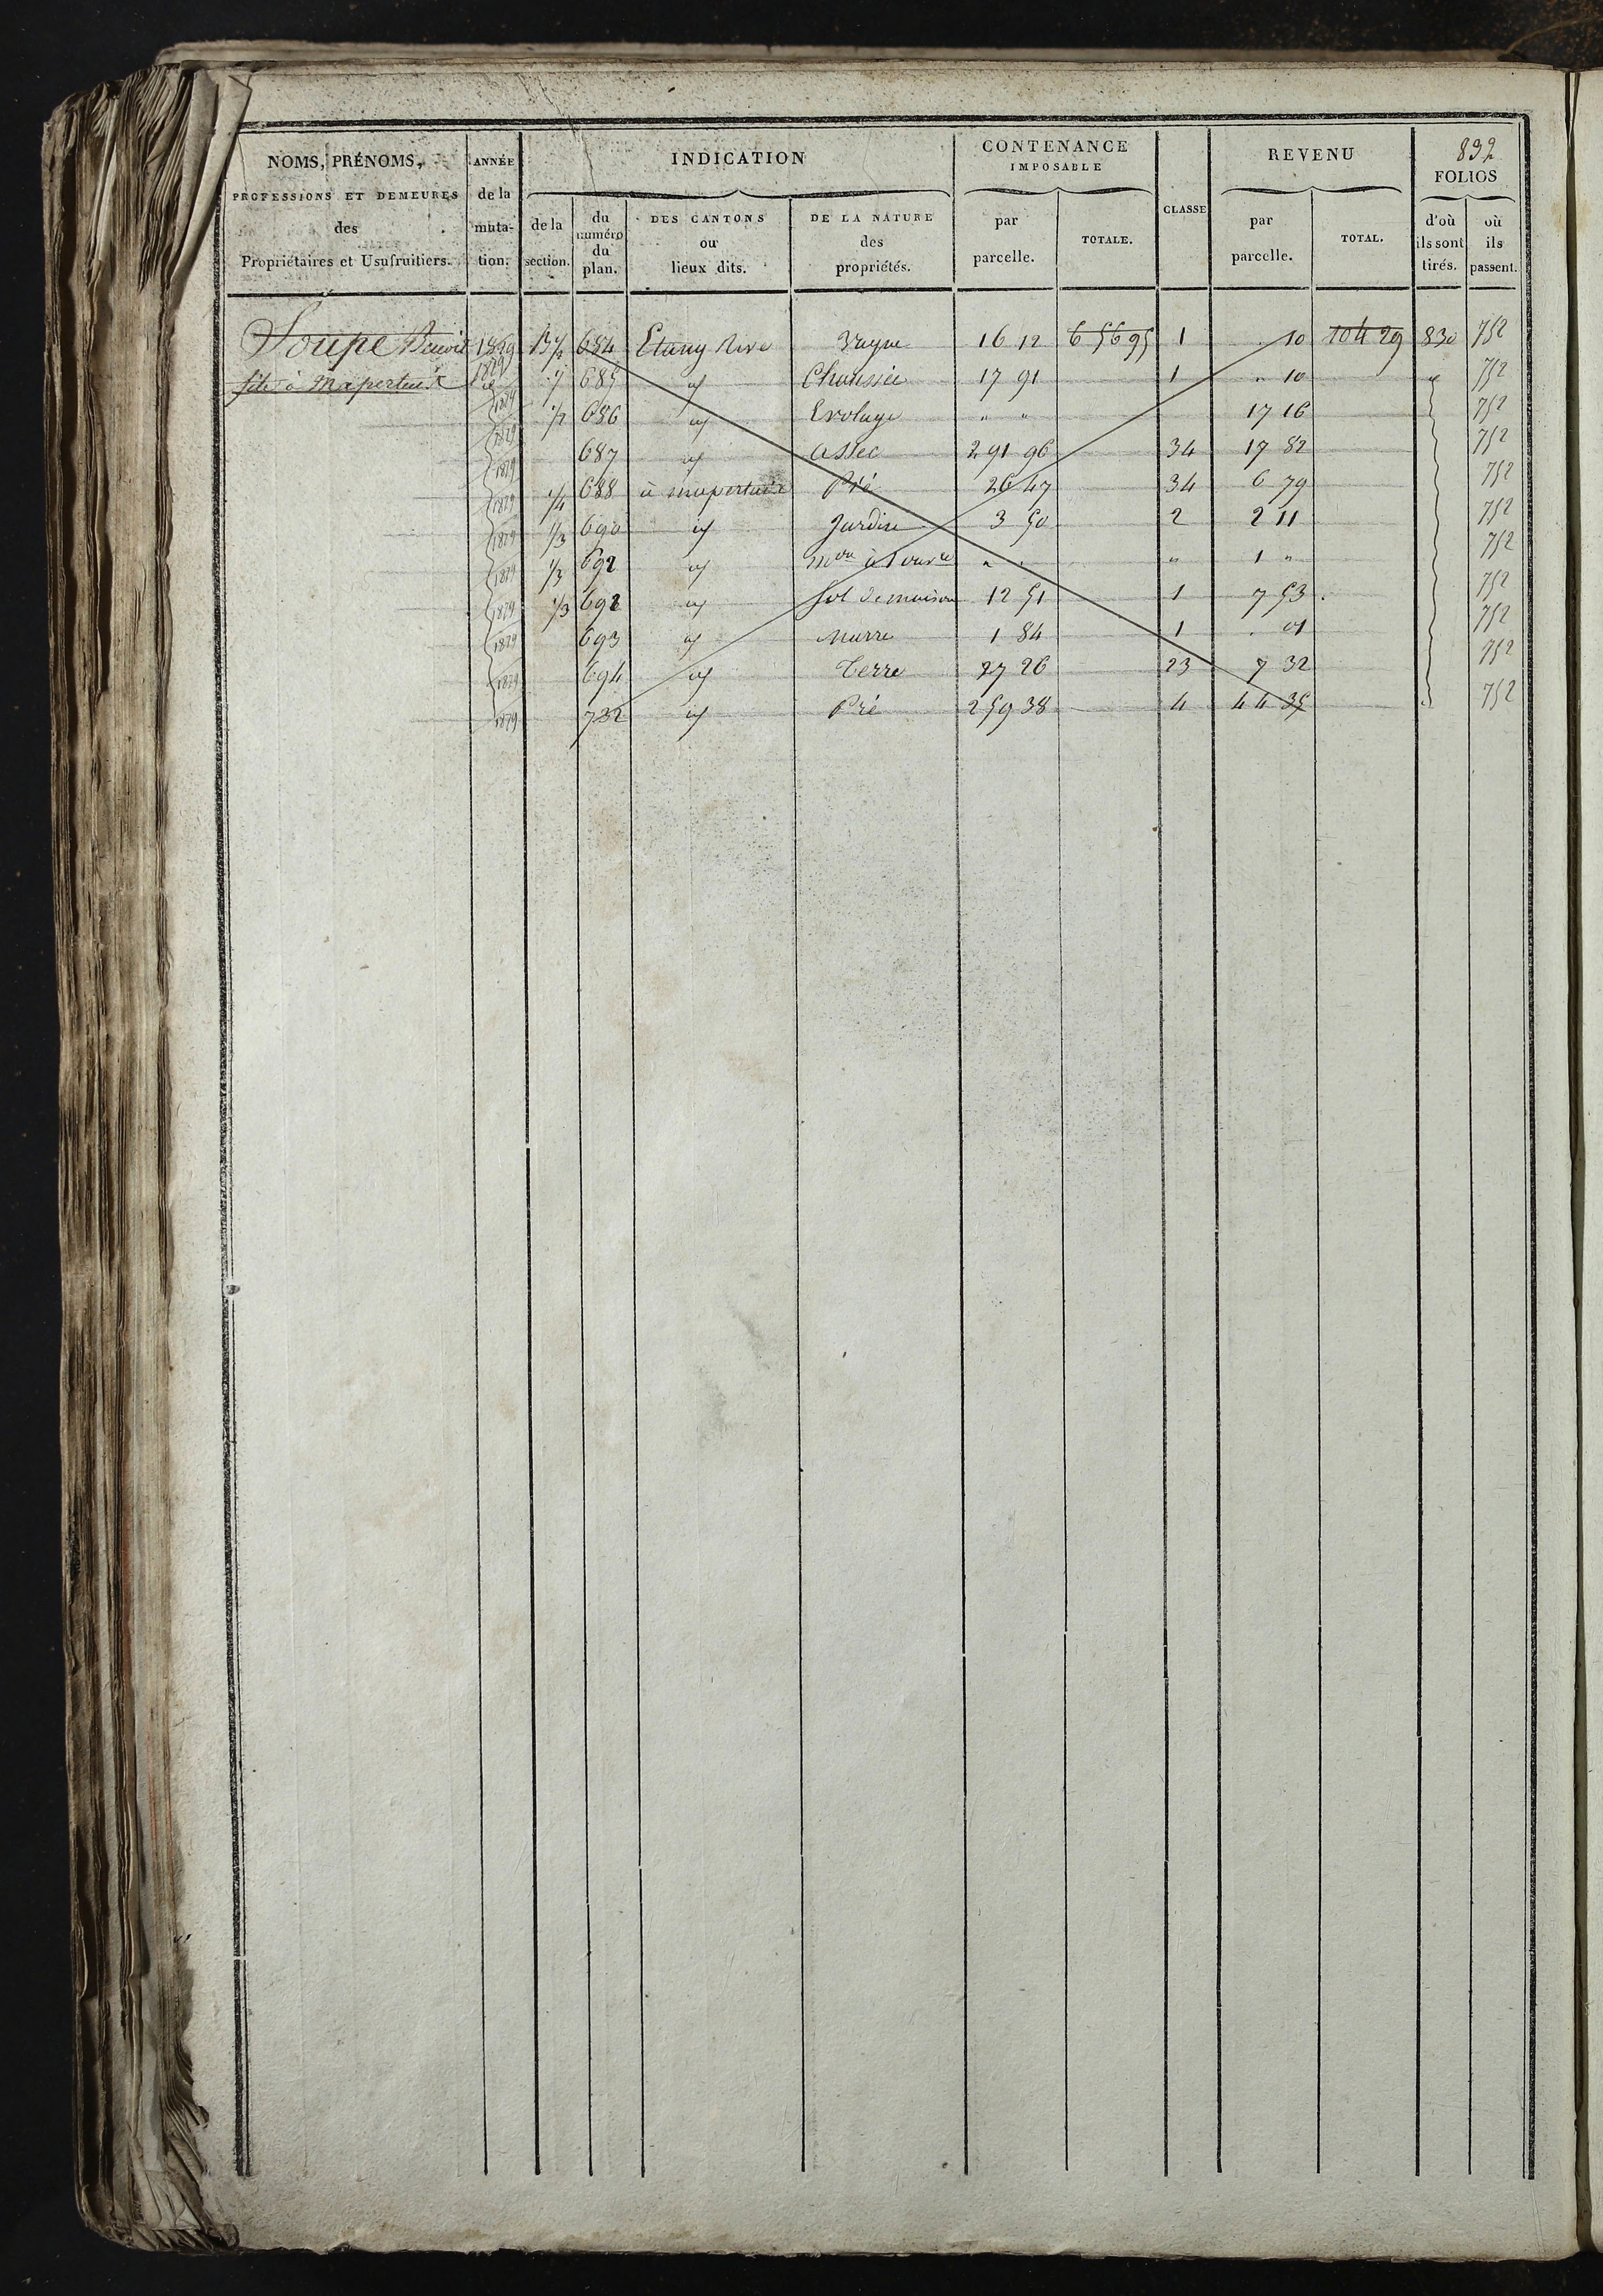 832
NOMS, PRÉNOMS, PROFESSIONS ET DEMEURES des Propriétaires et Usufruitiers.
ANNÉE de la mutation.
INDICATION
de la section.
du numéro du plan.
DES CANTONS ou lieux dits.
DE LA NATURE des propriétés.
CONTENANCE IMPOSABLE
par parcelle.
TOTALE.
CLASSE
REVENU
par parcelle.
TOTAL.
FOLIOS
d'où ils sont tirés.
où ils passent.
Soupe Benoit 1829 B 1/2 684 Etang Vague 16 12 6 56 95 1 10 104 29 830 752
fils à Mapertuit 1829 685 Chaussée 17 91 1 " 10 752
1829 1/2 686 Evolage " " 17 16 752
1829 687 assec 2 91 96 34 17 82 752
1829 1/4 688 à mapertuit Pré 26 47 34 6 79 752
1829 1/3 690 Jardin 3 50 2 2 11 752
1829 1/3 692 " " " 1 " 752
1829 1/3 692 Sol de maison 12 51 1 7 53 752
1829 693 marre 1 84 1 . 01 752
1829 694 Terre 27 26 23 7 32 752
1829 732 Pré 2 59 38 4 44 35 752